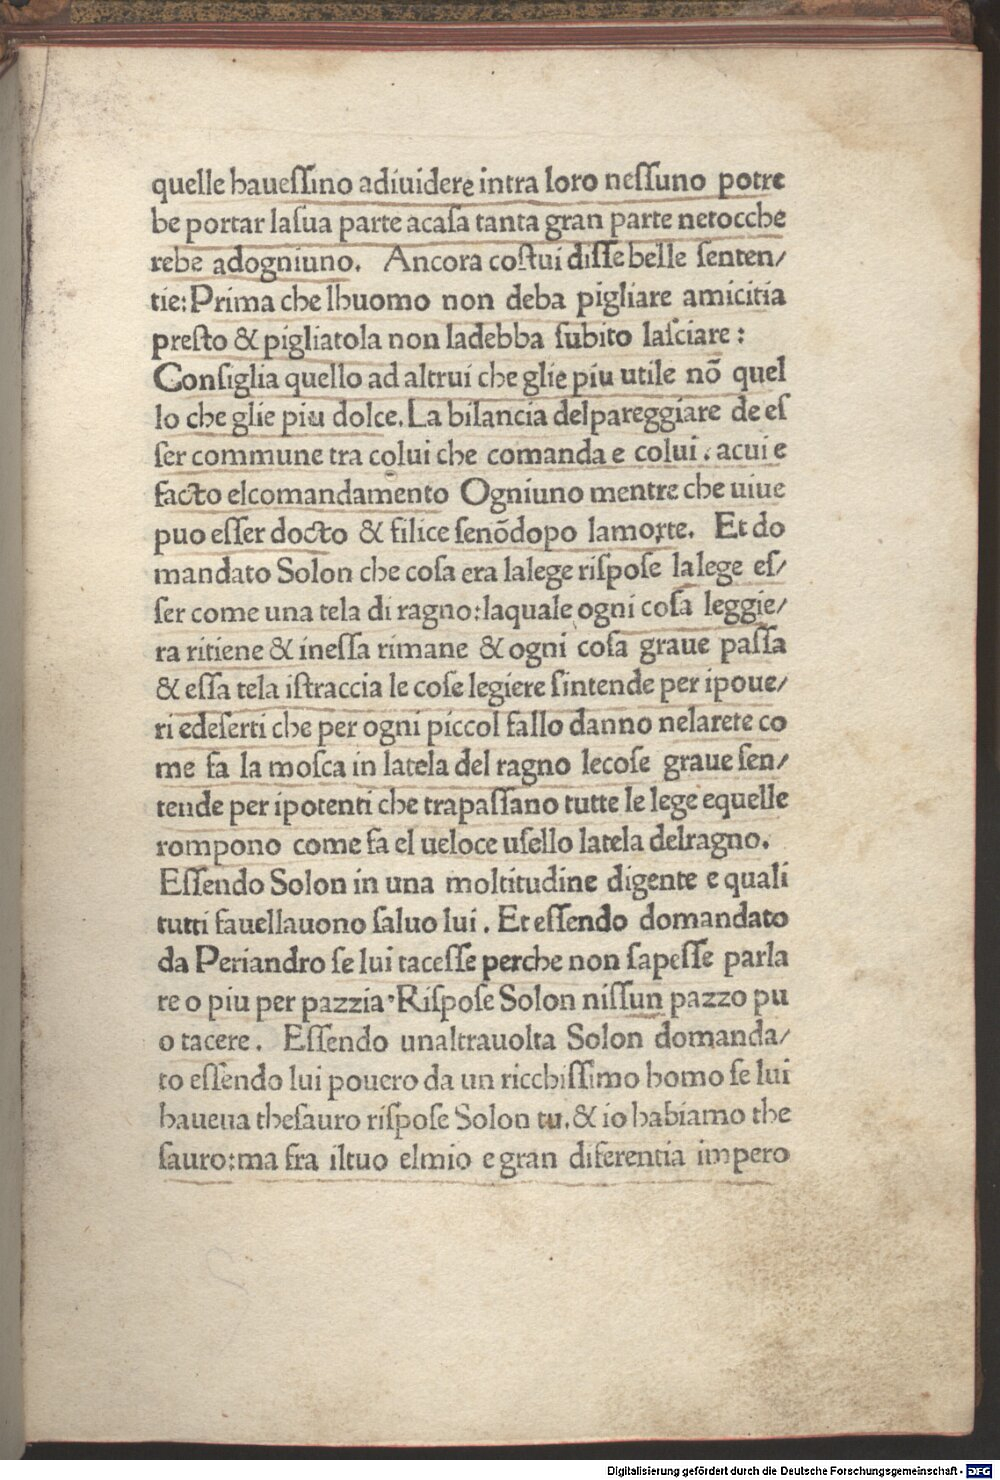 quelle haueſſino adiuidere intra loro neſſuno potre
be portar laſua parte acaſa tanta gran parte netocche
rebe adogniuno. Ancora coſtui diſſe belle ſenten/
tie: Prima che lhuomo non deba pigliare amicitia
preſto & pigliatola non ladebba ſubito laſciare :
Conſiglia quello ad altrui che glie piu utile nō quel
lo che glie piu dolce. La bilancia delpareggiare de eſ
ſer commune tra colui che comanda e colui . acui e
facto elcomandamento Ogniuno mentre che uiue
puo eſſer docto & filice ſenōdopo lamorte. Et do
mandato Solon che coſa era lalege riſpoſe lalege eſ/
ſer come una tela di ragno: laquale ogni coſa leggie/
ra ritiene & ineſſa rimane & ogni coſa graue paſſa
& eſſa tela iſtraccia le coſe legiere ſintende per ipoue/
ri edeſerti che per ogni piccol fallo danno nelarete co
me fa la moſca in latela del ragno lecoſe graue ſen/
tende per ipotenti che trapaſſano tutte le lege equelle
rompono come fa el ueloce uſello latela delragno.
Eſſendo Solon in una moltitudine digente e quali
tutti fauellauono ſaluo lui . Et eſſendo domandato
da Periandro ſe lui taceſſe perche non ſapeſſe parla
re o piu per pazzia·Riſpoſe Solon niſſun pazzo pu
o tacere . Eſſendo unaltrauolta Solon domanda/
to eſſendo lui pouero da un ricchiſſimo homo ſe lui
haueua theſauro riſpoſe Solon tu. & io habiamo the
ſauro: ma fra iltuo elmio e gran diferentia impero
Digitalisierung gefördert durch die Deutsche Forschungsgemeinschaft - DFG